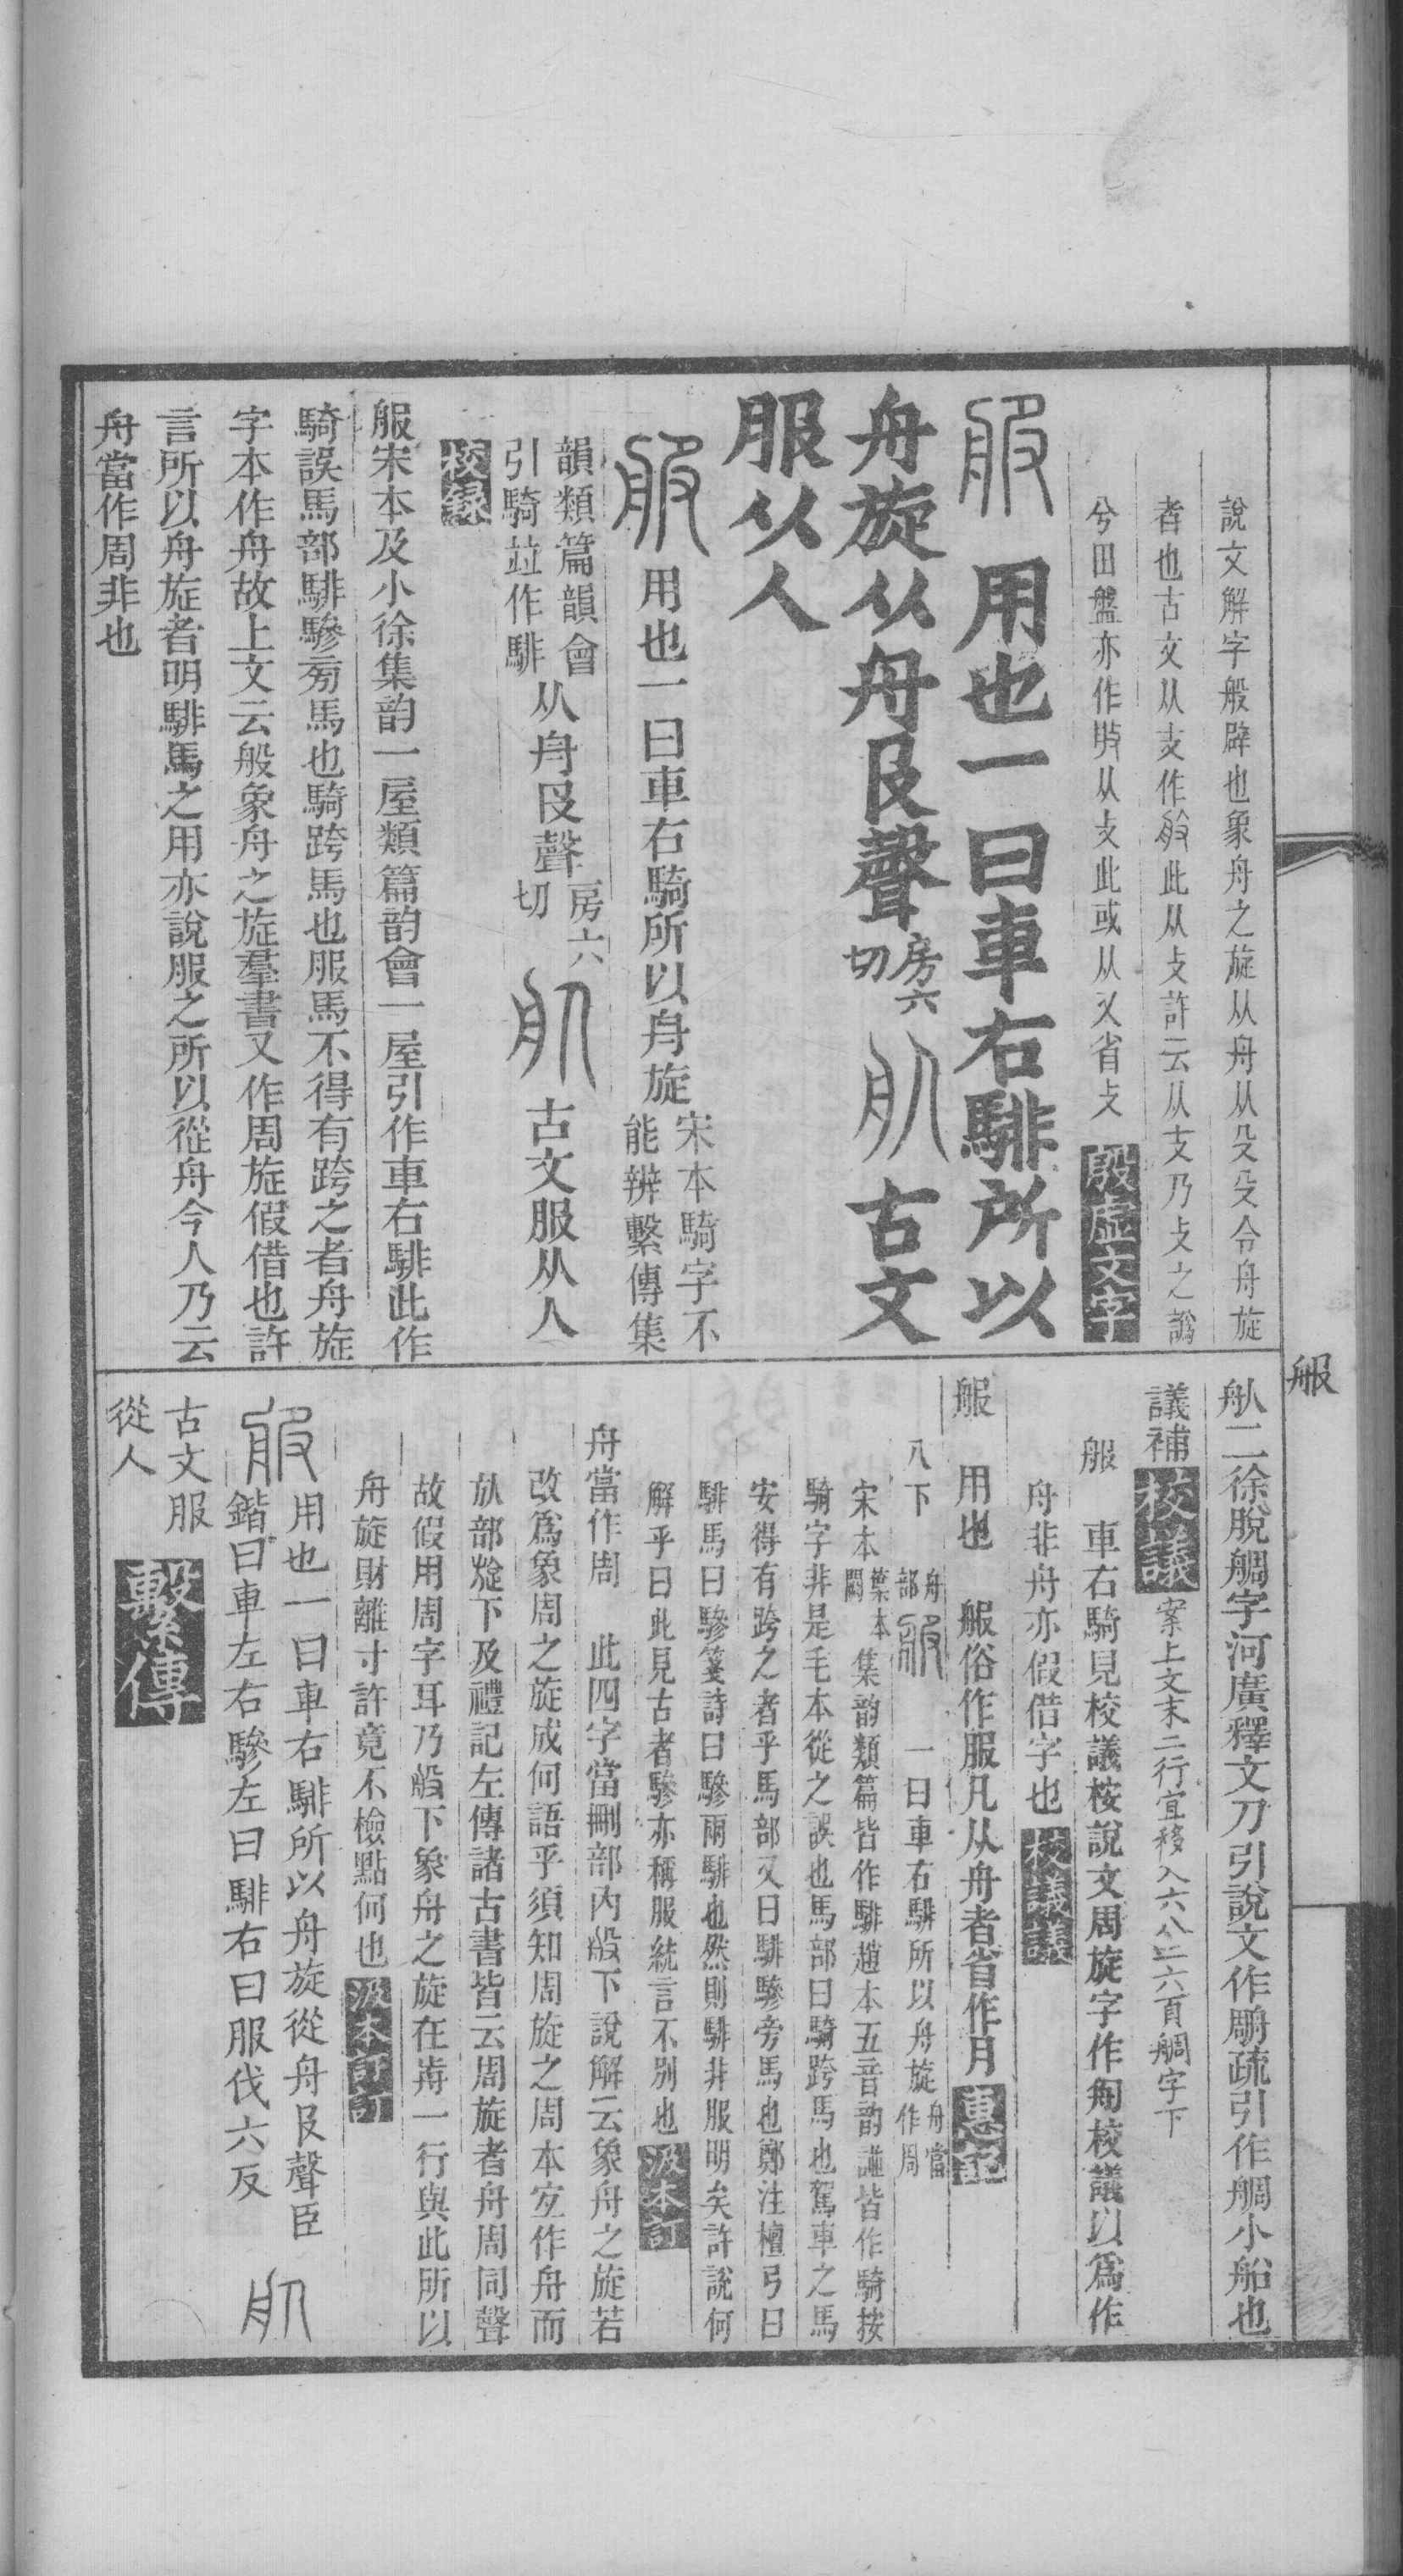 說文解字般辟也象舟之旋从舟从殳殳令舟旋
者也古文从支作𦨗此从攴許云从支乃攴之譌
兮田盤亦作从攴此或从又省攴 殷虛文字
用也一曰車右騑所以
舟旋从舟𠬝聲房六切 古文
服从人
用也一曰車右騎所以舟旋宋本騎字不能辨繫傳集
韻類篇韻會引騎竝作騑从舟𠬝聲房六切 古文服从人
校錄
服宋本及小徐集韵一屋類篇韵會一屋引作車右騑此作
騎誤馬部騑驂㫄馬也騎跨馬也服馬不得有跨之者舟旋
字本作舟故上文云般象舟之旋羣書又作周旋假借也許
言所以舟旋者明騑馬之用亦說服之所以從舟今人乃云
舟當作周非也
舤二徐脫鯛字河廣釋文刀引說文作鵰疏引作鯛小船也
議補 校議 案上文末二行宜移入六六頁字下
服 車右騎見校議桉說文周旋字作匊校議以爲作
舟非舟亦假借字也 校議議
服 用也 服俗作服凡从舟者省作月 惠定
八下 舟部 一曰車右騑所以舟旋舟當作周
宋本葉本闕集韵類篇皆作騑趙本五音韵譜皆作騎按
騎字非是毛本從之誤也馬部曰騎跨馬也駕車之馬
安得有跨之者乎馬部又曰騑驂旁馬也鄭注檀弓曰
騑馬曰驂箋詩曰驂兩騑也然則騑非服明矣許說何
解乎曰此見古者驂亦稱服統言不別也 汲本訂
舟當作周 此四字當刪部内般下說解云象舟之旋若
改爲象周之旋成何語乎須知周旋之周本宐作舟而
㫃部旋下及禮記左傳諸古書皆云周旋者舟周同聲
故假用周字耳乃般下象舟之旋在歬一行與此所以
舟旋財離寸許竟不檢點何也 汲本訂訂
用也一曰車右騑所以舟旋從舟𠬝聲臣
鍇曰車左右驂左曰騑右曰服伐六反
古文服
從人 繫傳
服